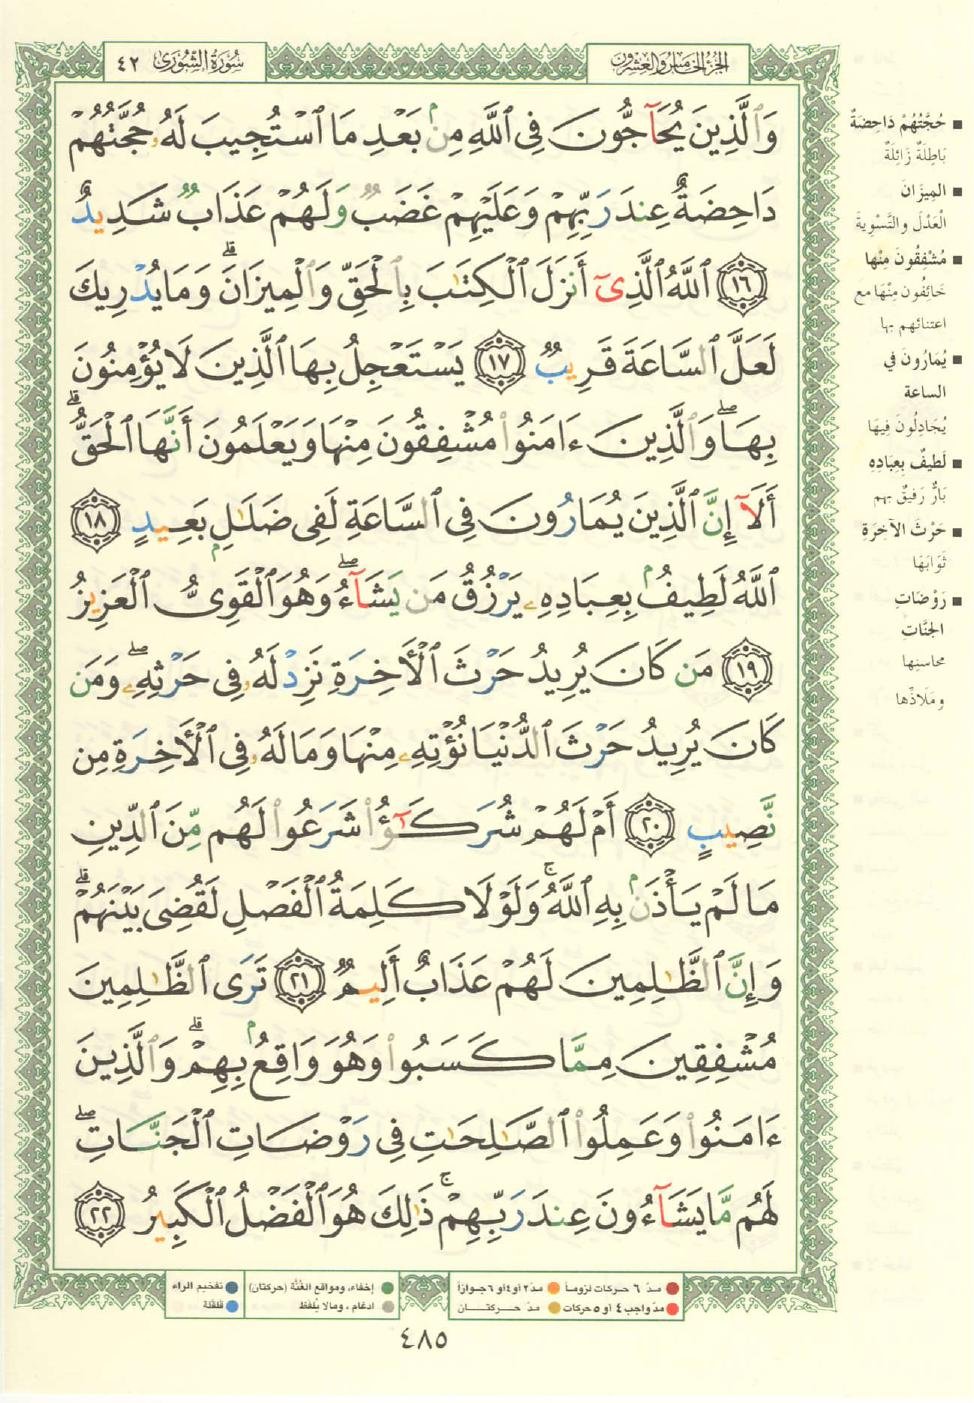 سُورَةُ الشُّورَىٰ ٤٢
الجُزْءُ الخَامِسُ وَالعِشْرُونَ
وَٱلَّذِينَ يُحَآجُّونَ فِى ٱللَّهِ مِنۢ بَعْدِ مَا ٱسْتُجِيبَ لَهُۥ حُجَّتُهُمْ
دَاحِضَةٌ عِندَ رَبِّهِمْ وَعَلَيْهِمْ غَضَبٌ وَلَهُمْ عَذَابٌ شَدِيدٌ
﴿١٦﴾ ٱللَّهُ ٱلَّذِىٓ أَنزَلَ ٱلْكِتَٰبَ بِٱلْحَقِّ وَٱلْمِيزَانَ ۗ وَمَا يُدْرِيكَ
لَعَلَّ ٱلسَّاعَةَ قَرِيبٌ ﴿١٧﴾ يَسْتَعْجِلُ بِهَا ٱلَّذِينَ لَا يُؤْمِنُونَ
بِهَا ۖ وَٱلَّذِينَ ءَامَنُوا۟ مُشْفِقُونَ مِنْهَا وَيَعْلَمُونَ أَنَّهَا ٱلْحَقُّ ۗ
أَلَآ إِنَّ ٱلَّذِينَ يُمَارُونَ فِى ٱلسَّاعَةِ لَفِى ضَلَٰلٍۭ بَعِيدٍ ﴿١٨﴾
ٱللَّهُ لَطِيفٌۢ بِعِبَادِهِۦ يَرْزُقُ مَن يَشَآءُ ۖ وَهُوَ ٱلْقَوِىُّ ٱلْعَزِيزُ
﴿١٩﴾ مَن كَانَ يُرِيدُ حَرْثَ ٱلْأَخِرَةِ نَزِدْ لَهُۥ فِى حَرْثِهِۦ ۖ وَمَن
كَانَ يُرِيدُ حَرْثَ ٱلدُّنْيَا نُؤْتِهِۦ مِنْهَا وَمَا لَهُۥ فِى ٱلْأَخِرَةِ مِن
نَّصِيبٍ ﴿٢٠﴾ أَمْ لَهُمْ شُرَكَٰٓؤُا۟ شَرَعُوا۟ لَهُم مِّنَ ٱلدِّينِ
مَا لَمْ يَأْذَنۢ بِهِ ٱللَّهُ ۚ وَلَوْلَا كَلِمَةُ ٱلْفَصْلِ لَقُضِىَ بَيْنَهُمْ ۗ
وَإِنَّ ٱلظَّٰلِمِينَ لَهُمْ عَذَابٌ أَلِيمٌ ﴿٢١﴾ تَرَى ٱلظَّٰلِمِينَ
مُشْفِقِينَ مِمَّا كَسَبُوا۟ وَهُوَ وَاقِعٌۢ بِهِمْ ۗ وَٱلَّذِينَ
ءَامَنُوا۟ وَعَمِلُوا۟ ٱلصَّٰلِحَٰتِ فِى رَوْضَاتِ ٱلْجَنَّاتِ ۖ
لَهُم مَّا يَشَآءُونَ عِندَ رَبِّهِمْ ۚ ذَٰلِكَ هُوَ ٱلْفَضْلُ ٱلْكَبِيرُ ﴿٢٢﴾
■ حُجَّتُهُمْ دَاحِضَةٌ
بَاطِلَةٌ زَائِلَةٌ
■ المِيزَانَ
الْعَدْلَ والتَّسْوِيةَ
■ مُشْفِقُونَ مِنْها
خَائِفُونَ مِنْهَا مع
اعتنائهم بها
■ يُمَارُونَ في
الساعة
يُجَادِلُونَ فِيهَا
■ لَطِيفٌ بِعِبَادِهِ
بَارٌّ رَفِيقٌ بهم
■ حَرْثَ الآخِرَةِ
ثَوَابَهَا
■ رَوْضَاتِ
الجَنَّات
محاسنِها
ومَلَاذِّها
مدّ ٦ حركات لزوماً مدّ٢ أو٤أو ٦جوازاً
مدّ واجب ٤ أو ٥ حركات مدّ حركتان
إخفاء، ومواقع الغُنَّة (حركتان) تفخيم الراء
ادغام ، ومالا يُلفَظ قلقلة
٤٨٥